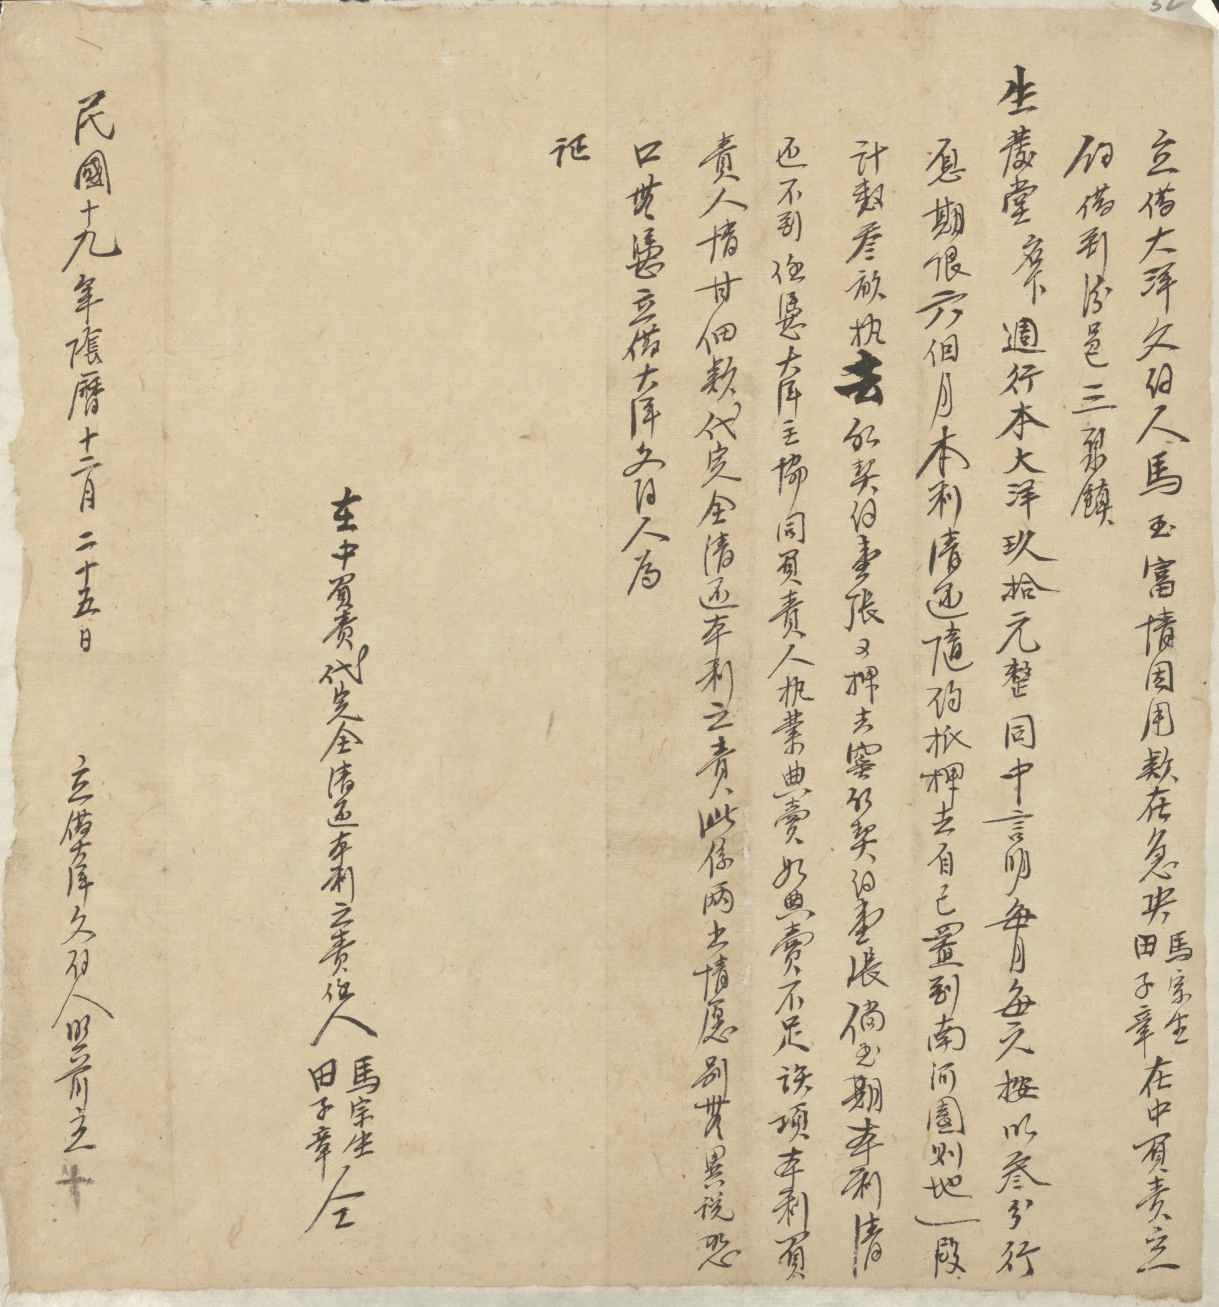 立借大洋文約人馬玉富情因用款在急央馬宗生田子章在中負責立
約借到汾邑三泉鎮
生慶堂名下週行本大洋玖拾元整同中言明每月每元按以叁分行
息期限六個月本利清还隨約抵押去自己置到南河園則地一段
計數叁畝执去红契约壹張又押去窰红契约壹張倘至期本利清
还不到任憑大洋主協同負責人执業典賣如典賣不足該項本利負
責人情甘佃款代完全清还本利之責此係兩出情愿別無異說恐
口無憑立借大洋文約人為
証
在中負責代完全清还本利之責任人馬宗生田子章仝
民國十九年陰曆十二月二十五日 立借大洋文約人照前立 十